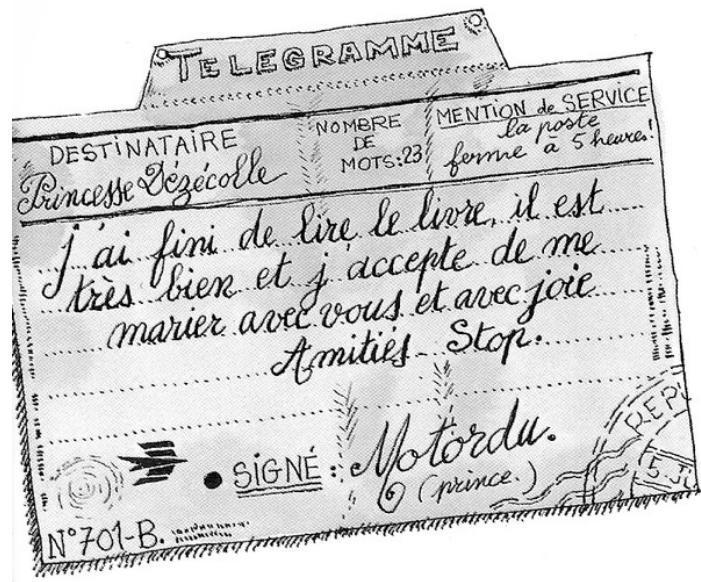 TELEGRAMME
DESTINATAIRE
Princesse Dézécolle
NOMBRE
DE
MOTS:23
MENTION de SERVICE
la poste
ferme à 5 heures!
j'ai fini de lire le livre, il est
très bien et j'accepte de me
marier avec vous et avec joie
Amitiés Stop.
• SIGNÉ : Motordu.
(prince.)
N°701-B.
REPU
5 JU